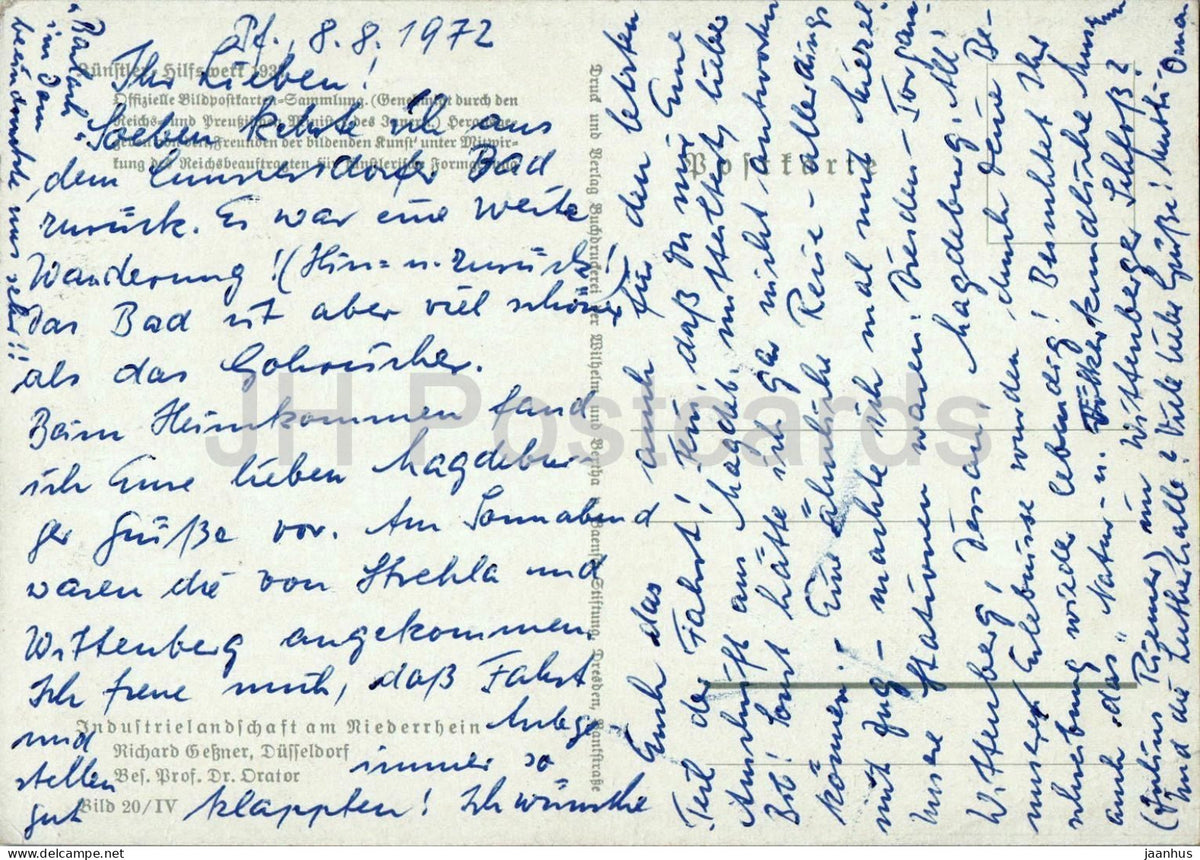 Pf., 8.8.1972
Ihr Lieben!
Soeben kehrte ich aus
dem Cunnersdorfer Bad
zurück. Es war eine weite
Wanderung! (Hin= u. zurück!)
Das Bad ist aber viel schöner
als das Gohrischer.
Beim Heimkommen fand
ich Eure lieben Magdebur-
ger Grüße vor. Am Sonnabend
waren die von Strehla und
Wittenberg angekommen.
Ich freue mich, daß Fahrt
und Anlege
stellen immer so
gut klappten! Ich wünsche
Euch das auch für den letzten
Teil der Fahrt! Fein, daß Du mir Eure
Ankunft aus Magdeb. mitteiltest, liebe
Bib! Sonst hätte ich gar nicht antworten
können! Eine ähnliche Reise - allerdings
mit Zug - machte ich mal mit Mierel.
Unsere Stationen waren: Dresden - Torgau -
Wittenberg! Dessau! Magdeburg! All
unsere Erlebnisse wurden durch Deine Be-
schreibung wieder lebendig! Besuchtet Ihr
auch das "Natur- u. Völkerkundliche Museum
(Julius Riemer) im Wittenberger Schloß?
und die Lutherhalle? Viele liebe Grüße! Mutti-Oma
"Barlach"
im Dom
beeindruckte uns sehr!!
Künstler-Hilfswerk 193
Offizielle Bildpostkarten-Sammlung. (Genehmigt durch den
Reichs- und Preußischen Minister des Innern.) Herausge-
geben von den Freunden der bildenden Kunst unter Mitwir-
kung des Reichsbeauftragten für künstlerische Formgebung
Industrielandschaft am Niederrhein
Richard Geßner, Düsseldorf
Bes. Prof. Dr. Orator
Bild 20/IV
Druck und Verlag Buchdruckerei der Wilhelm und Bertha v. Baensch Stiftung, Dresden,
Postkarte
JH Postcards
jh-postcards.com
jaanhus